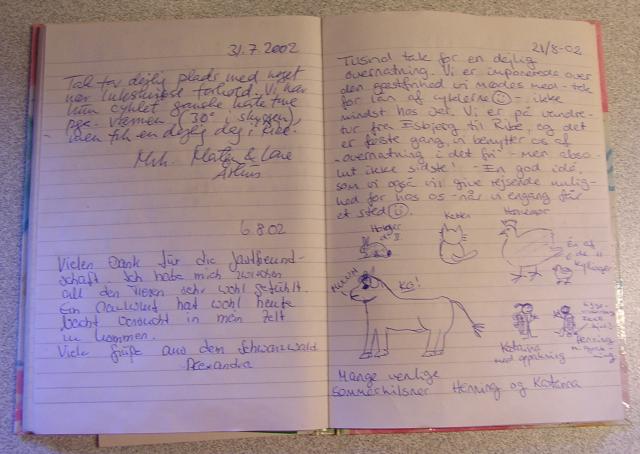 31.7 2002
Tak for dejlig plads med noget
nær luksuriøse forhold. Vi har
kun cyklet ganske korte ture
pga. varmen (30° i skyggen),
men fik en dejlig dag i Ribe.
Mvh.
Århus
6.8.02
Vielen Dank für die Gastfreund-
schaft. Ich habe mich zwischen
all den Tieren sehr wohl gefühlt.
Ein Maulwurf hat wohl heute
Nacht versucht in mein Zelt
zu kommen.
Viele Grüße aus dem Schwarzwald
Alexandra
21/8-02
Tusind tak for en dejlig
overnatning. Vi er imponerede over
den gæstfrihed vi mødes med - tak
for lån af cyklerne ☺ - ikke
mindst hos jer. Vi er på vandre-
tur fra Esbjerg til Ribe, og det
er første gang, vi benytter os af
"overnatning i det fri" - men abso-
lut ikke sidste! - En god idé,
som vi også vil give rejsende mulig-
hed for hos os - når vi engang får
et sted ☺.
Katten
En af
de 11
kyllinger
MUUUH
Ko!
Katarina
med oppakning
Henning
Mange venlige
sommerhilsner Henning og Katarina